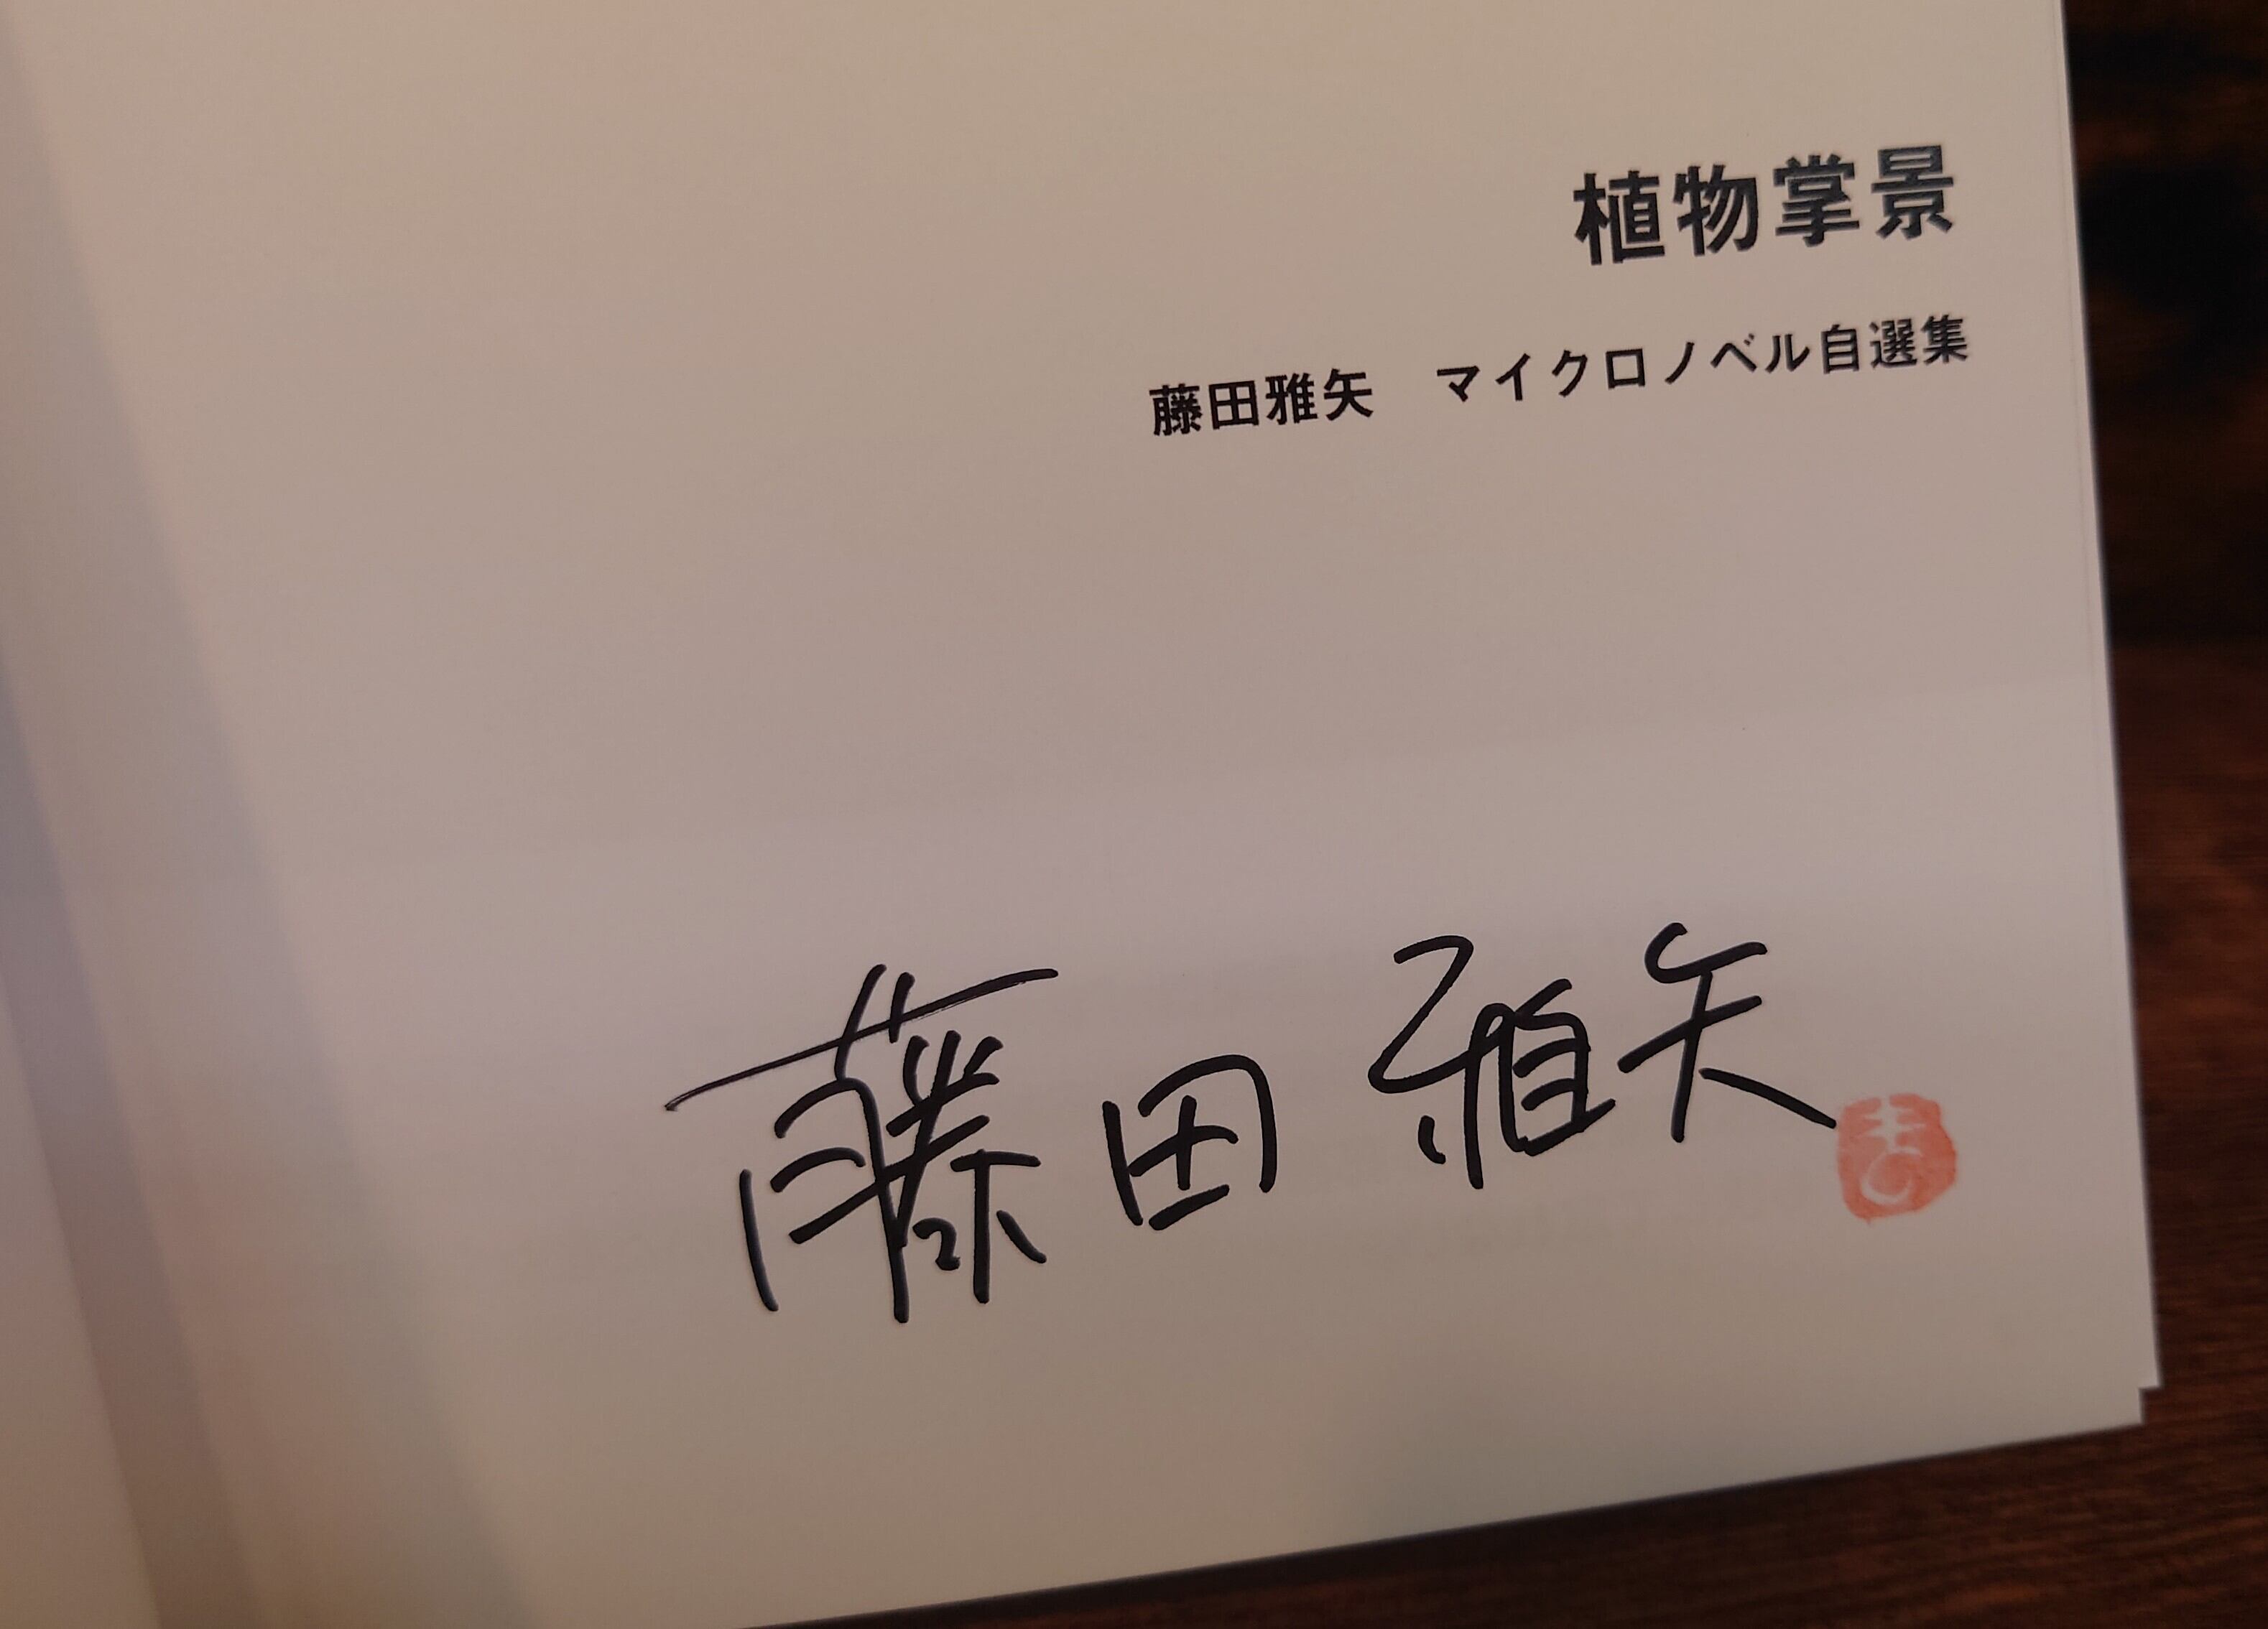 植物掌景
藤田雅矢　マイクロノベル自選集
藤田雅矢